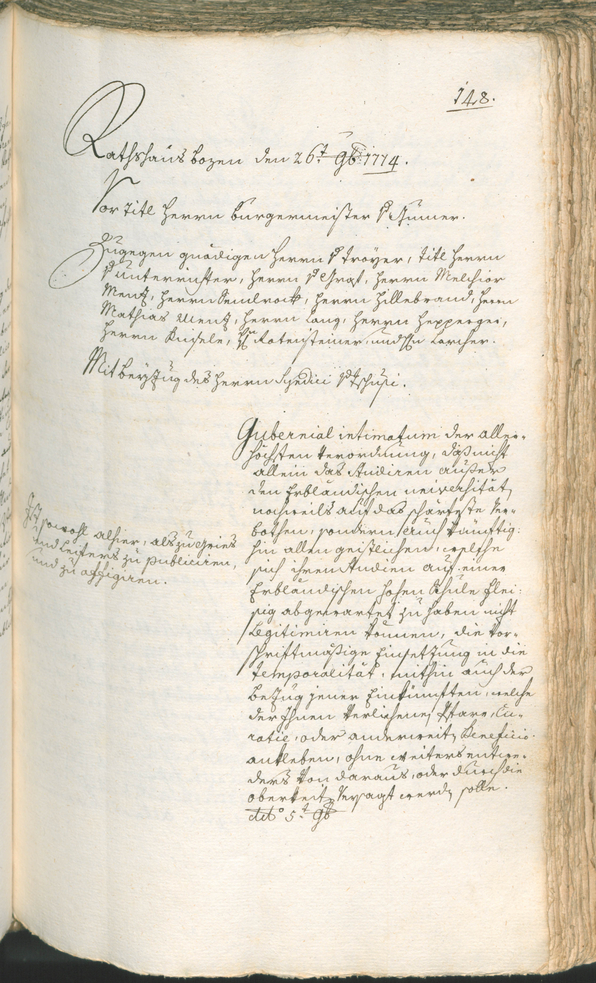 148.
Rathshaus bozen den 26t 9b: 1774.
Vor titl herrn burgermeister v
Zugegen gnädigen herrn v Troyer, titl herrn
v unterrichter, herrn v Grat, herrn Melchior
Menz, herrn herrn hillebrand, herrn
Mathias Menz, herrn Lang, herrn hepperger,
herrn Kinsele, und Larcher.
Mit beyzug des herrn Syndici
Gubernial intimatum der aller-
höchsten verordnung, daß nicht
allein das studiren außer
den Erbländischen universitäten
nochmals auf das schärfeste ver-
bothen, sondern auch künftig-
hin allen geistlichen, welche
sich ihren studien auf einer
Erbländischen hohen Schule flei-
sig abgewartet zu haben nicht
Legitimiren können, die vor-
schriftmäßige Einsetzung in die
temporalitæt, mithin auch der
bezug jener Einkünften, welche
der ihnen verliehenen Pfarr, Cu-
ratie, oder anderweit Beneficio
ankleben, ohne weiters entwe-
ders von daraus, oder durch die
oberkeit versagt werden solle.
ddo 5t 9b
Ist sowohl alhier, als zu gries
und Leifers zu publiciren,
und zu affigiren.